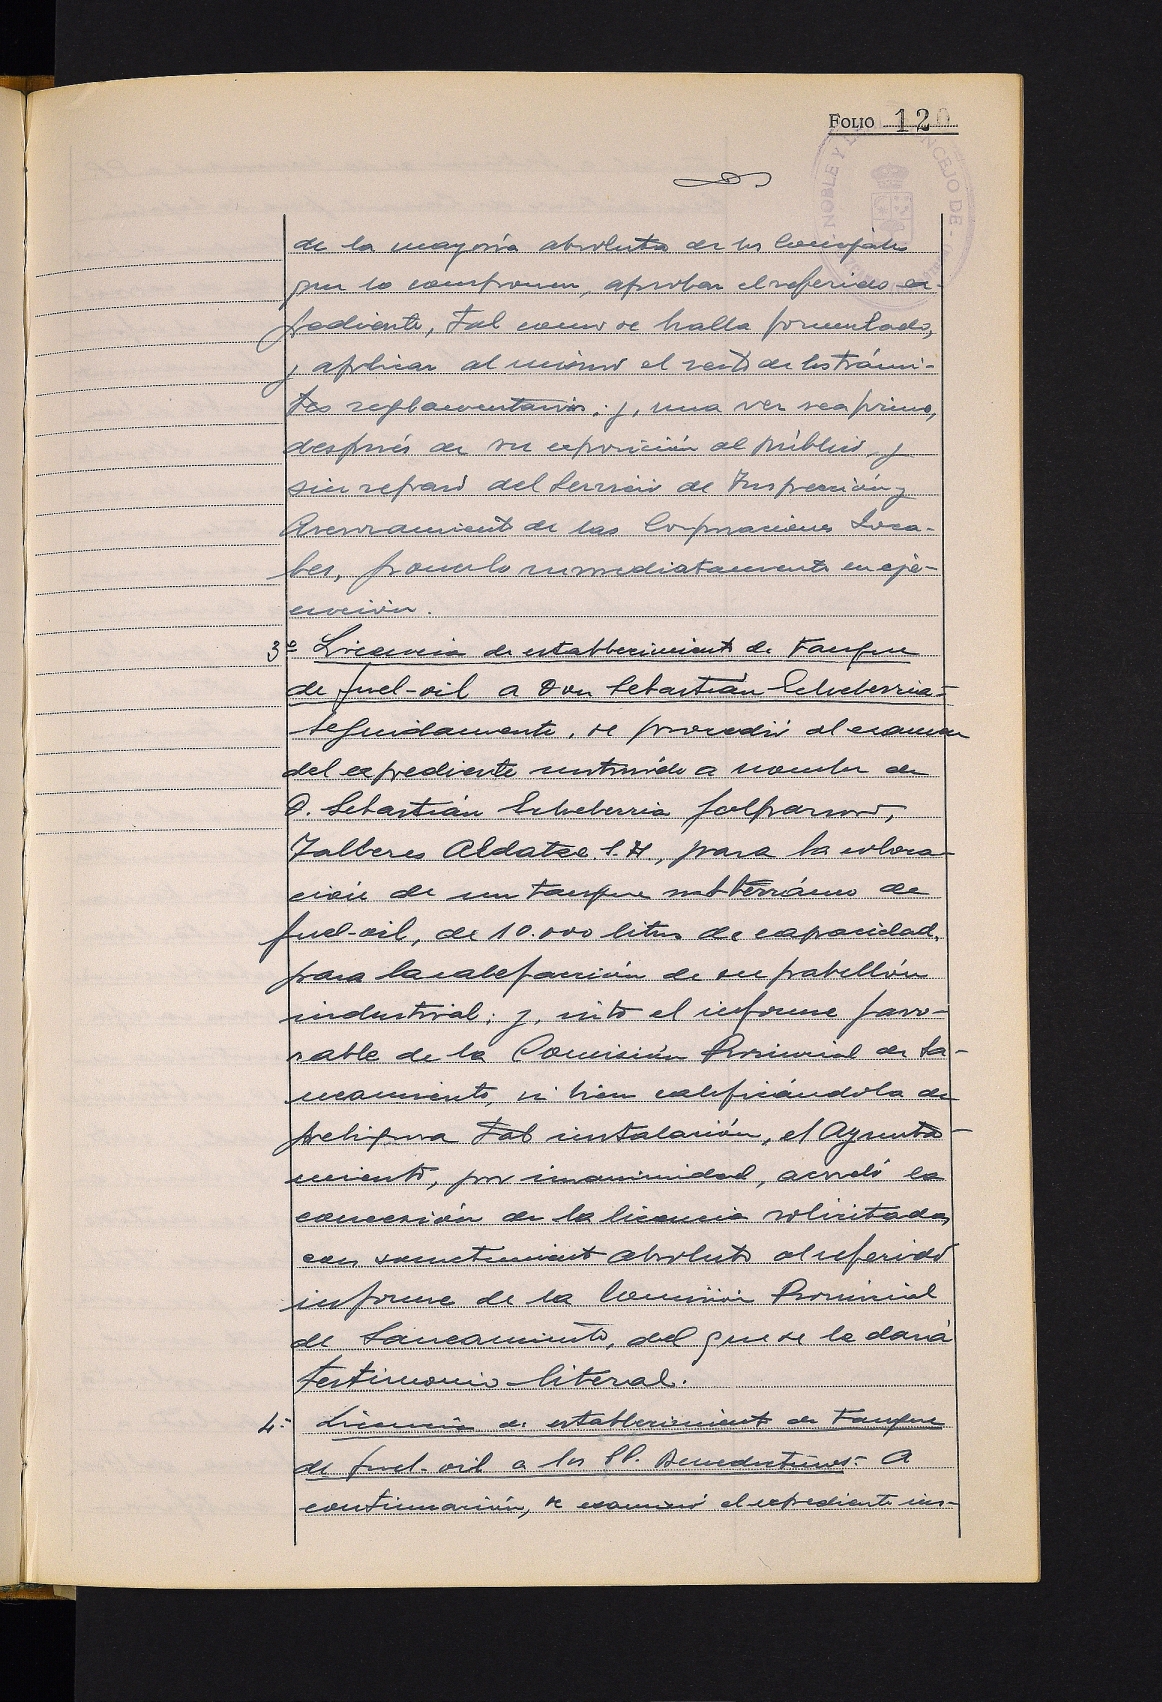 FOLIO 120
NOBLE Y L NCEJO DE
de la mayoría absoluta de los Concejales
que lo componen, aprobar el referido ex-
pediente, tal como se halla formulado,
y aplicar al mismo el resto de los trámi-
tes reglamentarios; y, una vez sea firme,
después de su exposición al público y
sin reparo del Servicio de Inspección y
Asesoramiento de las Corporaciones Loca-
les, ponerlo inmediatamente en eje-
cución.
3º Licencia de establecimiento de tanque
de fuel-oil a Don Sebastián Echeberria.-
Seguidamente, se procedió al examen
del expediente instruido a nombre de
D. Sebastián Echeberria Galparsoro,
Talleres Aldatze S.A., para la coloca-
ción de un tanque subterráneo de
fuel-oil, de 10.000 litros de capacidad,
para la calefacción de su pabellón
industrial; y, visto el informe favo-
rable de la Comisión Provincial de Sa-
neamiento, si bien calificándola de
peligrosa tal instalación, el Ayunta-
miento, por unanimidad, acordó la
concesión de la licencia solicitada,
con sometimiento absoluto al referido
informe de la Comisión Provincial
de Saneamiento, del que se le dará
testimonio literal.
4.- Licencia de establecimiento de tanque
de fuel-oil a los PP. Benedictinos.- A
continuación, se examinó el expediente ins-